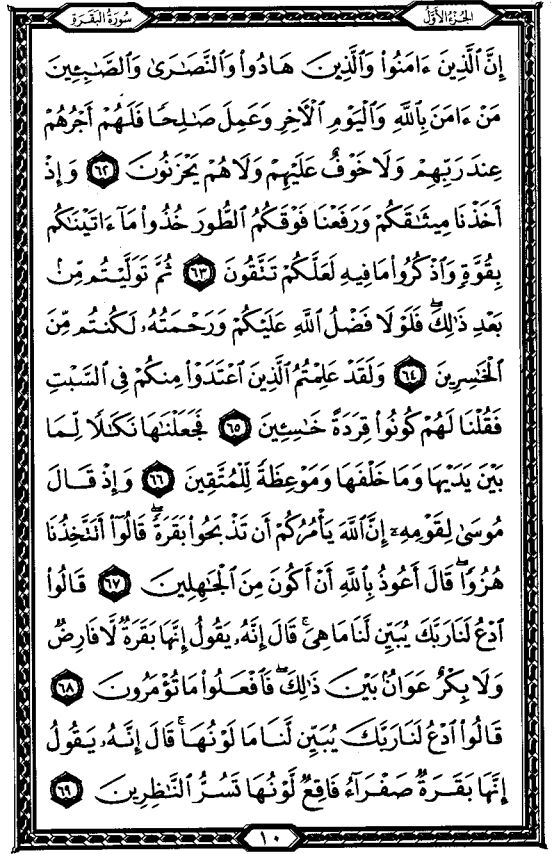 الجزء الأول
سورة البقرة
إِنَّ الَّذِينَ ءَامَنُوا۟ وَالَّذِينَ هَادُوا۟ وَالنَّصَٰرَىٰ وَالصَّٰبِـِٔينَ
مَنْ ءَامَنَ بِاللَّهِ وَالْيَوْمِ الْءَاخِرِ وَعَمِلَ صَٰلِحًا فَلَهُمْ أَجْرُهُمْ
عِندَ رَبِّهِمْ وَلَا خَوْفٌ عَلَيْهِمْ وَلَا هُمْ يَحْزَنُونَ ٦٢ وَإِذْ
أَخَذْنَا مِيثَٰقَكُمْ وَرَفَعْنَا فَوْقَكُمُ الطُّورَ خُذُوا۟ مَآ ءَاتَيْنَٰكُم
بِقُوَّةٍ وَاذْكُرُوا۟ مَا فِيهِ لَعَلَّكُمْ تَتَّقُونَ ٦٣ ثُمَّ تَوَلَّيْتُم مِّنۢ
بَعْدِ ذَٰلِكَ ۖ فَلَوْلَا فَضْلُ اللَّهِ عَلَيْكُمْ وَرَحْمَتُهُۥ لَكُنتُم مِّنَ
الْخَٰسِرِينَ ٦٤ وَلَقَدْ عَلِمْتُمُ الَّذِينَ اعْتَدَوْا۟ مِنكُمْ فِى السَّبْتِ
فَقُلْنَا لَهُمْ كُونُوا۟ قِرَدَةً خَٰسِـِٔينَ ٦٥ فَجَعَلْنَٰهَا نَكَٰلًا لِّمَا
بَيْنَ يَدَيْهَا وَمَا خَلْفَهَا وَمَوْعِظَةً لِّلْمُتَّقِينَ ٦٦ وَإِذْ قَالَ
مُوسَىٰ لِقَوْمِهِۦٓ إِنَّ اللَّهَ يَأْمُرُكُمْ أَن تَذْبَحُوا۟ بَقَرَةً ۖ قَالُوٓا۟ أَتَتَّخِذُنَا
هُزُوًا ۖ قَالَ أَعُوذُ بِاللَّهِ أَنْ أَكُونَ مِنَ الْجَٰهِلِينَ ٦٧ قَالُوا۟
ادْعُ لَنَا رَبَّكَ يُبَيِّن لَّنَا مَا هِىَ ۚ قَالَ إِنَّهُۥ يَقُولُ إِنَّهَا بَقَرَةٌ لَّا فَارِضٌ
وَلَا بِكْرٌ عَوَانٌۢ بَيْنَ ذَٰلِكَ ۖ فَافْعَلُوا۟ مَا تُؤْمَرُونَ ٦٨
قَالُوا۟ ادْعُ لَنَا رَبَّكَ يُبَيِّن لَّنَا مَا لَوْنُهَا ۚ قَالَ إِنَّهُۥ يَقُولُ
إِنَّهَا بَقَرَةٌ صَفْرَآءُ فَاقِعٌ لَّوْنُهَا تَسُرُّ النَّٰظِرِينَ ٦٩
١٠